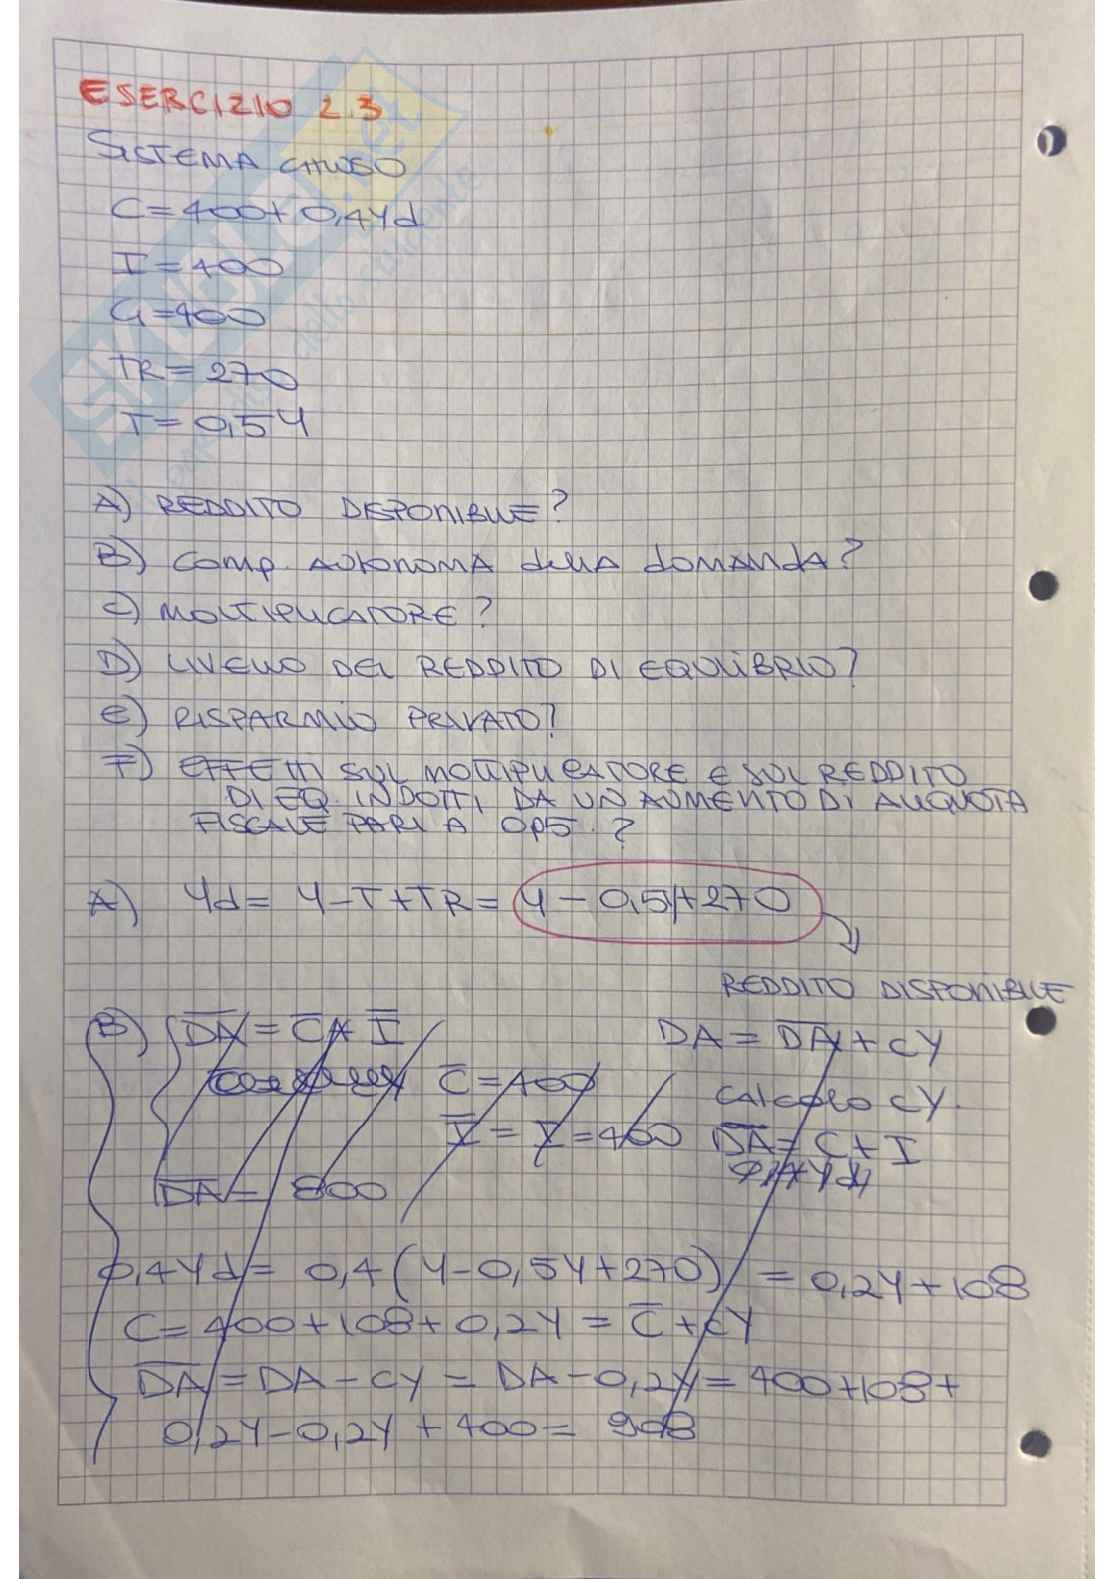 ESERCIZIO 2.3
SISTEMA CHIUSO
C=400+0,4Yd
I=400
G=400
TR=270
T=0,5Y
A) REDDITO DISPONIBILE?
B) COMP. AUTONOMA della domanda?
C) MOLTIPLICATORE?
D) LIVELLO DEL REDDITO DI EQUILIBRIO?
E) RISPARMIO PRIVATO?
F) EFFETTI SUL MOLTIPLICATORE E SUL REDDITO
DI EQ. INDOTTI DA UN AUMENTO DI ALIQUOTA
FISCALE PARI A 0,05.?
A) Yd= Y-T+TR= Y-0,5Y+270
REDDITO DISPONIBILE
B) DA = C + I
DA = DA + cY
C=400
CALCOLO cY.
I = I =400
DA = C + I
DA = 800
0,4Yd= 0,4(Y-0,5Y+270) = 0,2Y+108
C=400+108+0,2Y = C+cY
DA = DA-CY = DA-0,2Y = 400+108+
0,2Y-0,2Y+400= 908